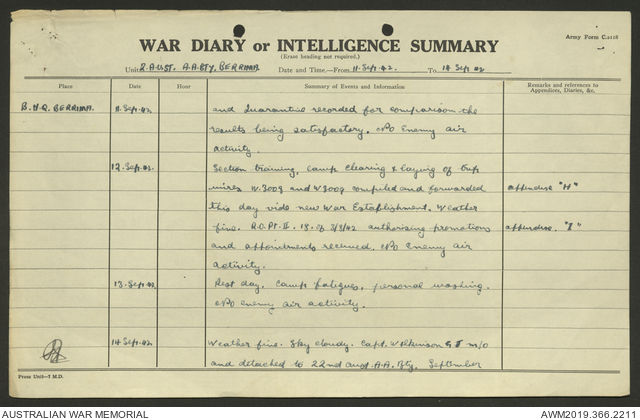 Army Form C.2118
WAR DIARY or INTELLIGENCE SUMMARY
(Erase heading not required.)
Unit 2. AUST. A.A. BTY. BERRIMA Date and Time.—From 11 Sept 42 To 14 Sep 42
Place Date Hour Summary of Events and Information Remarks and references to Appendices, Diaries, &c.
B.H.Q. BERRIMA. 11. Sep. 42 and Quarantine recorded for comparison the
results being satisfactory. No Enemy air
activity.
12. Sep. 42. Section training, camp clearing & laying of trip
wires W.3008 and W3009 compiled and forwarded appendise "H"
this day vide new War Establishment. Weather
fine. R.O. Pt. II. 13. of 3/9/42 authorising promotions appendise. "I"
and appointments received. No Enemy air
activity.
13. Sep. 42 Rest day. Camp fatigues, personal washing.
No enemy air activity.
14 Sep. 42. Weather fine. Sky cloudy. Capt. Wilkinson G F m/o
and detached to 22nd Aust A.A. Bty. September
Press Unit—7 M.D.
AUSTRALIAN WAR MEMORIAL AWM2019.366.2211